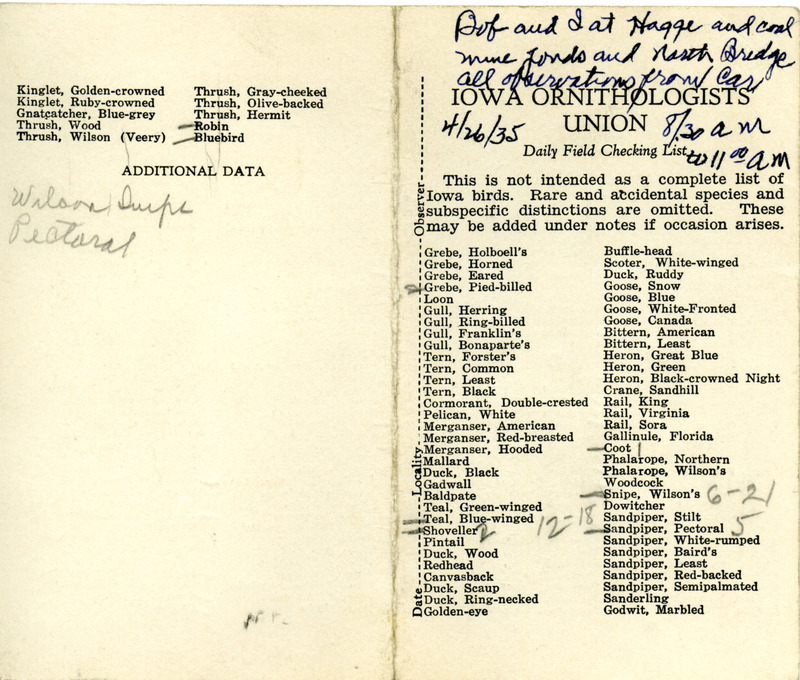 Kinglet, Golden-crowned
Kinglet, Ruby-crowned
Gnatcatcher, Blue-grey
Thrush, Wood
Thrush, Wilson (Veery)
Thrush, Gray-cheeked
Thrush, Olive-backed
Thrush, Hermit
Robin
Bluebird
ADDITIONAL DATA
Wilson Snipe
Pectoral
Bob and I at Hagge and coal
mine ponds and North Bridge
all observations from Car
IOWA ORNITHOLOGISTS
UNION
4/26/35
8/30 a m
to 11 00 a m
Daily Field Checking List
This is not intended as a complete list of
Iowa birds. Rare and accidental species and
subspecific distinctions are omitted. These
may be added under notes if occasion arises.
Date Locality Observer
Grebe, Holboell's
Grebe, Horned
Grebe, Eared
2 Grebe, Pied-billed
Loon
Gull, Herring
Gull, Ring-billed
Gull, Franklin's
Gull, Bonaparte's
Tern, Forster's
Tern, Common
Tern, Least
Tern, Black
Cormorant, Double-crested
Pelican, White
Merganser, American
Merganser, Red-breasted
Merganser, Hooded
Mallard
Duck, Black
Gadwall
Baldpate
Teal, Green-winged
Teal, Blue-winged 12-18
Shoveller 2
Pintail
Duck, Wood
Redhead
Canvasback
Duck, Scaup
Duck, Ring-necked
Golden-eye
Buffle-head
Scoter, White-winged
Duck, Ruddy
Goose, Snow
Goose, Blue
Goose, White-Fronted
Goose, Canada
Bittern, American
Bittern, Least
Heron, Great Blue
Heron, Green
Heron, Black-crowned Night
Crane, Sandhill
Rail, King
Rail, Virginia
Rail, Sora
Gallinule, Florida
Coot 1
Phalarope, Northern
Phalarope, Wilson's
Woodcock
Snipe, Wilson's 6-21
Dowitcher
Sandpiper, Stilt
Sandpiper, Pectoral 5
Sandpiper, White-rumped
Sandpiper, Baird's
Sandpiper, Least
Sandpiper, Red-backed
Sandpiper, Semipalmated
Sanderling
Godwit, Marbled